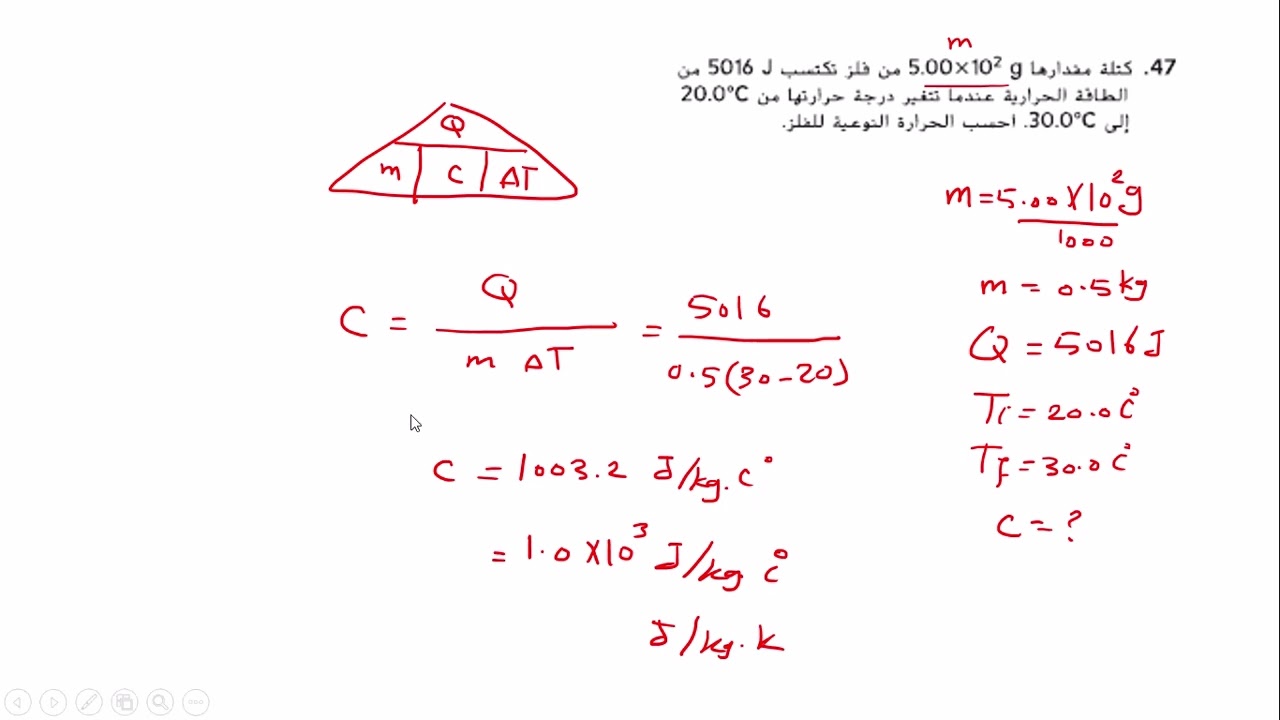 m
47. كتلة مقدارها 5.00×10² g من فلز تكتسب 5016 J من
الطاقة الحرارية عندما تتغير درجة حرارتها من 20.0°C
إلى 30.0°C. احسب الحرارة النوعية للفلز.
Q
m C ΔT
m = 5.00 X 10² g
1000
m = 0.5 kg
Q = 5016 J
Ti = 20.0 C°
Tf = 30.0 C°
C = ?
C = Q / m ΔT = 5016 / 0.5(30-20)
C = 1003.2 J/kg.C°
= 1.0 X 10³ J/kg C°
J/kg.K